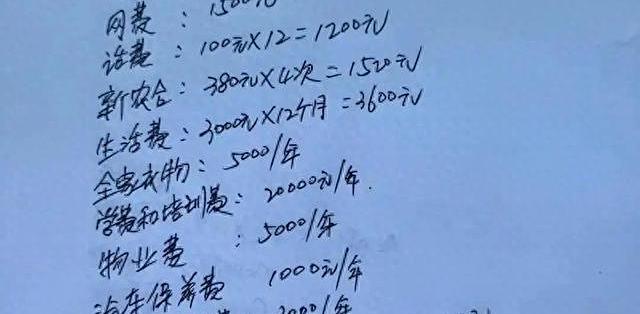 网费：1500元
话费：100元×12=1200元
新农合：380元×4次=1520元
生活费：3000元×12个月=3600元
全家衣物：5000/年
学费和培训费：20000元/年.
物业费：5000/年
汽车保养费 1000元/年
3000/年